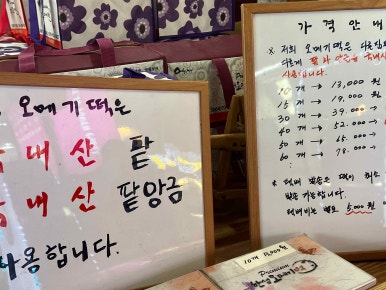 오메기떡은
내산 팥
내산 팥앙금
사용합니다.
가격안내
※ 저희 오메기떡은
사용합니다.
10개 → 13,000원
15개 → 19,000원
30개 → 39,000
40개 → 52,000
50개 → 65,000
60개 → 78,000
※ 택배 발송은
가능합니다.
택배비는 별도 5,000원
10개 13,000원
Premium